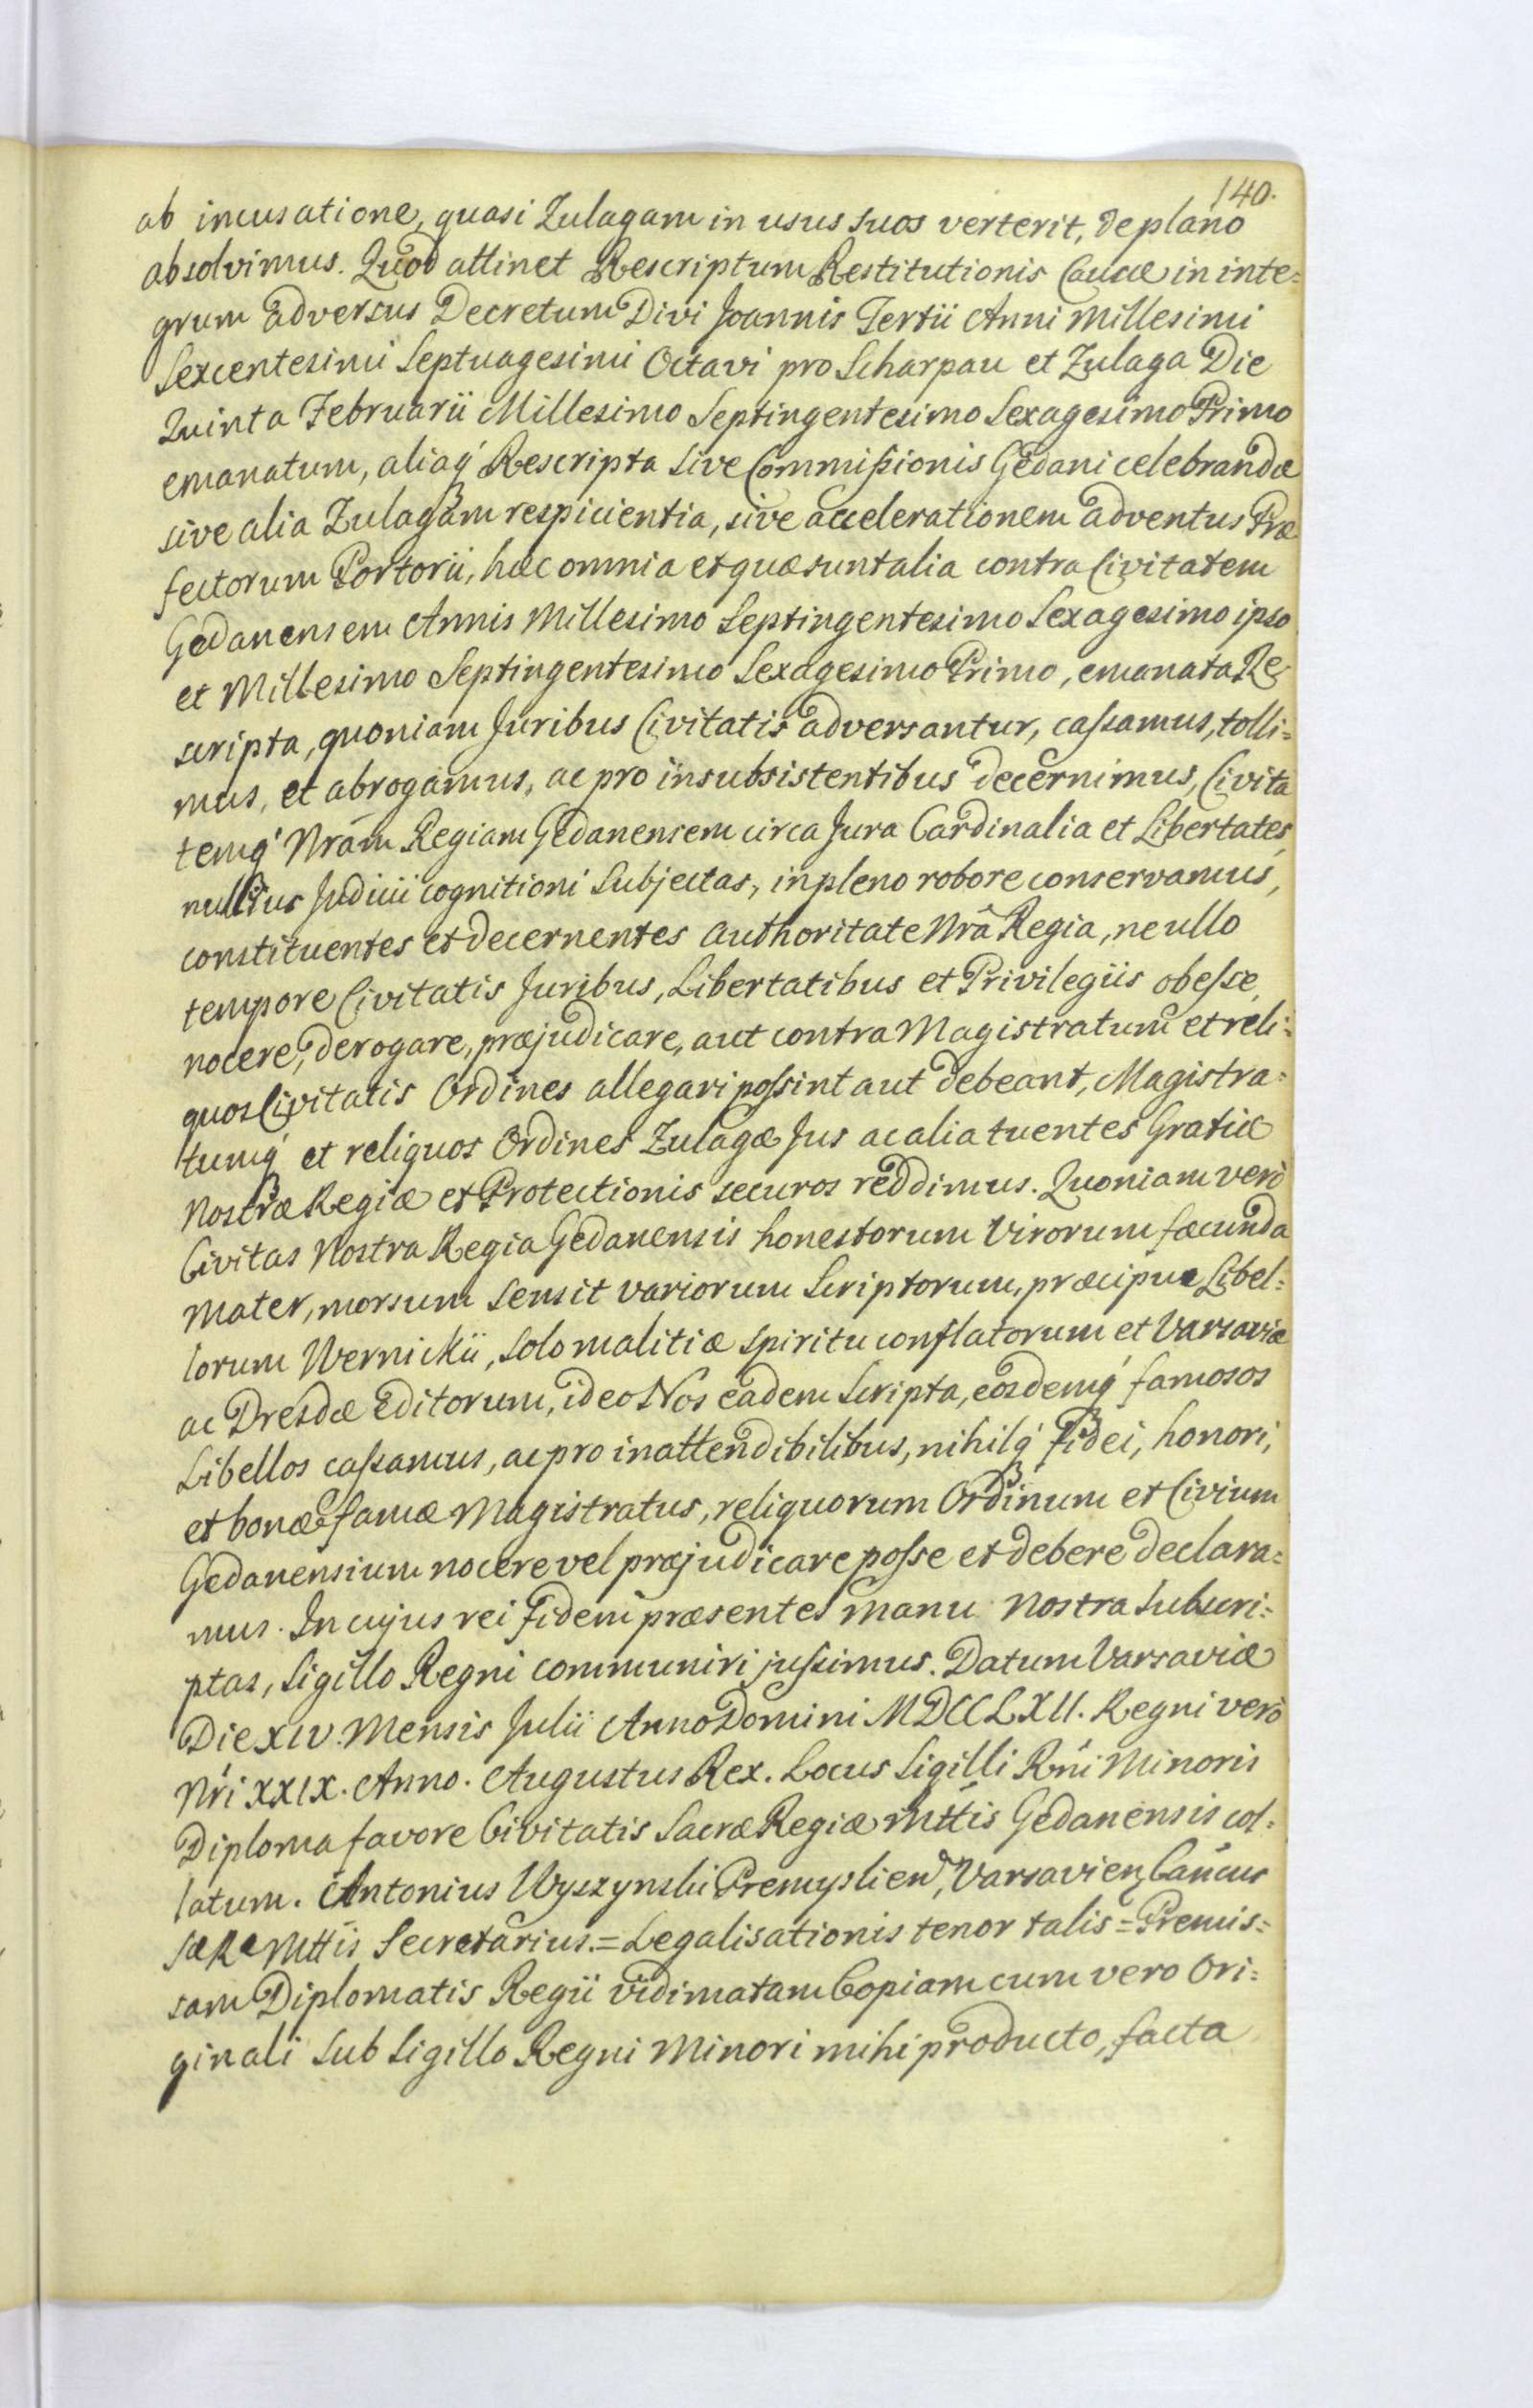 140.
ab incusatione, quasi Zulagam in usus suos verterit, de plano
absolvimus. Quod attinet Rescriptum Restitutionis Causæ in inte=
grum adversus Decretum Divi Joannis Tertii Anni Millesimi
Sexcentesimi Septuagesimi Octavi pro Scharpau et Zulaga Die
Quinta Februarii Millesimo Septingentesimo Sexagesimo Primo
emanatum, aliaq́ Rescripta sive Commissionis Gedani celebrandæ
sive alia Zulagam respicientia, sive accelerationem adventus Præ
fectorum Portorii, hæc omnia et quæ sunt alia contra Civitatem
Gedanensem Annis Millesimo Septingentesimo Sexagesimo ipso
et Millesimo Septingentesimo Sexagesimo Primo, emanata Re
scripta, quoniam Juribus Civitatis adversantur, cassamus, tolli=
mus, et abrogamus, ac pro insubsistentibus decernimus, Civita
temq́ Nram̃ Regiam Gedanensem circa Jura Cardinalia et Libertates,
nullius Judicii cognitioni Subjectas, in pleno robore conservamus,
constituentes et decernentes Authoritate Nrâ Regia, ne ullo
tempore Civitatis Juribus, Libertatibus et Privilegiis obesse,
nocere, derogare, præjudicare, aut contra Magistratum et reli=
quos Civitatis Ordines allegari possint aut debeant, Magistra=
tumq́ et reliquos Ordines Zulagæ Jus ac alia tuentes Gratiæ
Nostræ Regiæ et Protectionis securos reddimus. Quoniam verò
Civitas Nostra Regia Gedanensis honestorum Virorum fæcunda
Mater, morsum sensit variorum Scriptorum, præcipue Libel=
lorum Wernickii, solo malitiæ spiritu conflatorum et Varsaviæ
ac Dresdæ Editorum, ideo Nos eadem Scripta, eosdemq́ famosos
Libellos cassamus, ac pro inattendibilibus, nihilq́ fidei, honori,
et bonæ famæ Magistratus, reliquorum Ordinum et Civium
Gedanensium nocere vel præjudicare posse et debere declara=
mus. In cujus rei fidem præsentes manu Nostra Subscri=
ptas, Sigillo Regni communiri jussimus. Datum Varsaviæ
Die XIV. Mensis Julii Anno Domini MDCCLXII. Regni verò
Nri XXIX. Anno. Augustus Rex. Locus Sigilli Rni Minoris
Diploma favore Civitatis Sacræ Regiæ Mttis Gedanensis col=
latum. Antonius Wyszynski Premyslien, Varsavien Cancus
Sæ Ræ Mttis Secretarius.= Legalisationis tenor talis = Premis=
sam Diplomatis Regii vidimatam Copiam cum vero Ori=
ginali sub Sigillo Regni Minori mihi producto, facta